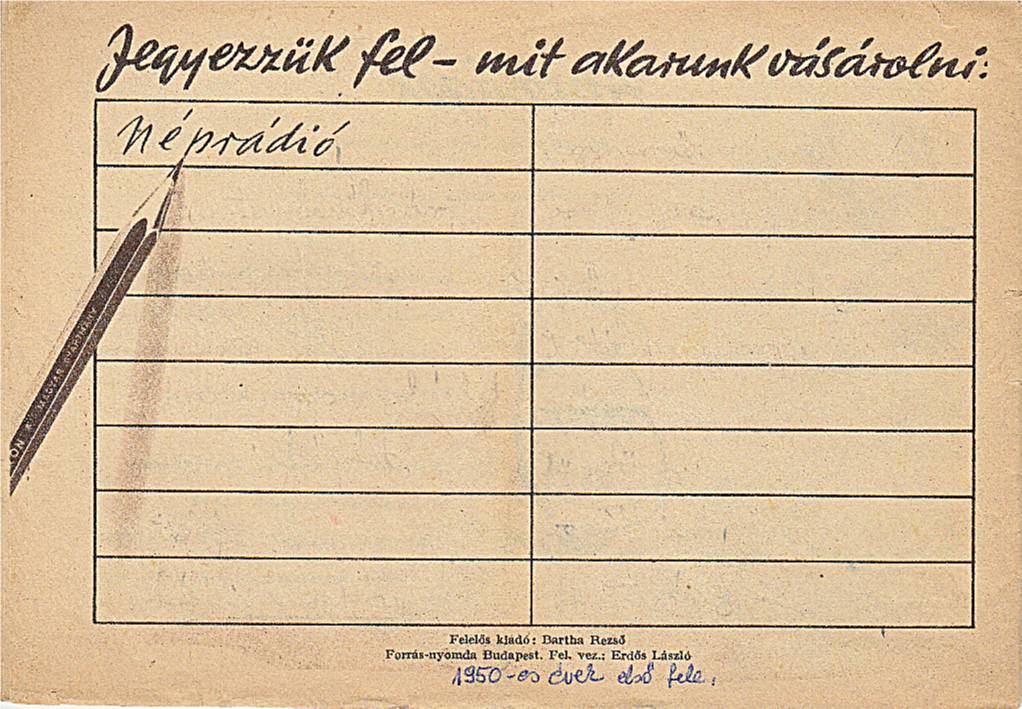 Jegyezzük fel - mit akarunk vásárolni:
Néprádió
MAGYAR GYÁRTMÁNY
Felelős kiadó: Bartha Rezső
Forrás-nyomda Budapest. Fel. vez.: Erdős László
1950-es évek első fele.